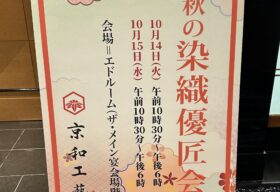 秋の染織優匠会
10月14日(火) 午前10時30分〜午後6時
10月15日(水) 午前10時30分〜午後6時
会場=エドルーム(ザ・メイン宴会場階
京和工芸